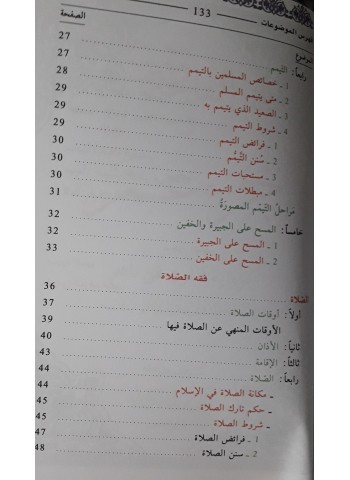 فهرس الموضوعات 133
الموضوع الصفحة
رابعاً: التيمم 27
1 ـ خصائص المسلمين بالتيمم 27
2 ـ متى يتيمم المسلم 28
3 ـ الصعيد الذي يتيمم به 29
4 ـ شروط التيمم 29
1 ـ فرائض التيمم 30
2 ـ سُنن التيمُّم 30
3 ـ مستحبات التيمم 30
4 ـ مبطلات التيمم 30
مَراحلُ التَيمّم المصورَةُ 31
خامساً: المسح على الجبيرة والخفين 32
1 ـ المسح على الجبيرة 32
2 ـ المسح على الخفين 33
فقه الصّلاة
الصّلاة 36
أولاً: أوقات الصلاة 37
الأوقات المنهي عن الصلاة فيها 39
ثانياً: الأذان 40
ثالثاً: الإقامة 43
رابعاً: الصّلاة 44
ـ مكانة الصلاة في الإسلام 44
ـ حكم تارك الصلاة 45
ـ شروط الصلاة 45
1 ـ فرائض الصلاة 45
2 ـ سنن الصلاة 48